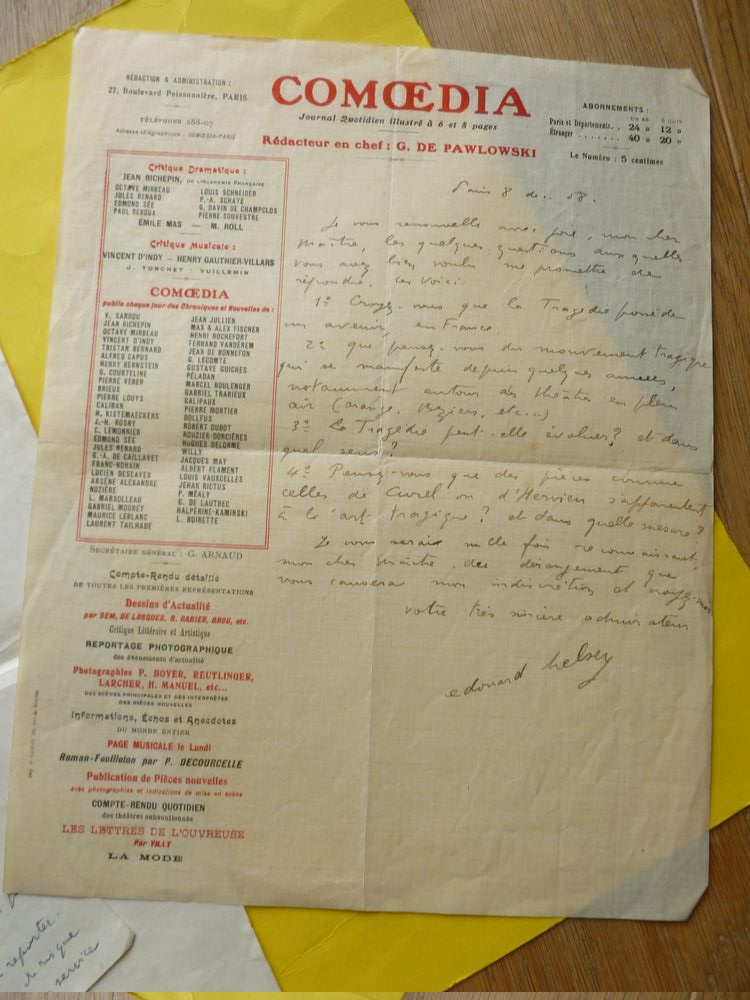 RÉDACTION & ADMINISTRATION :
27, Boulevard Poissonnière, PARIS
TÉLÉPHONE 288-07
Adresse télégraphique : COMŒDIA-PARIS
COMŒDIA
Journal Quotidien illustré à 6 et 8 pages
Rédacteur en chef : G. DE PAWLOWSKI
ABONNEMENTS :
UN AN 6 MOIS
Paris et Départements. . 24 » 12 »
Étranger . . . . 40 » 20 »
Le Numéro : 5 centimes
Critique Dramatique :
JEAN RICHEPIN, DE L'ACADÉMIE FRANÇAISE
OCTAVE MIRBEAU LOUIS SCHNEIDER
JULES RENARD P.-A. SCHAYÉ
EDMOND SÉE G. DAVIN DE CHAMPCLOS
PAUL REBOUX PIERRE SOUVESTRE
ÉMILE MAS — M. ROLL
Critique Musicale :
VINCENT D'INDY — HENRY GAUTHIER-VILLARS
J. TORCHET - VUILLEMIN
COMŒDIA
publie chaque jour des Chroniques et Nouvelles de :
V. SARDOU
JEAN RICHEPIN
OCTAVE MIRBEAU
VINCENT D'INDY
TRISTAN BERNARD
ALFRED CAPUS
HENRY BERNSTEIN
G. COURTELINE
PIERRE VEBER
BRIEUX
PIERRE LOUYS
CALIBAN
H. KISTEMAECKERS
J.-H. ROSNY
C. LEMONNIER
EDMOND SÉE
JULES RENARD
G.-A. DE CAILLAVET
FRANC-NOHAIN
LUCIEN DESCAVES
ARSÈNE ALEXANDRE
NOZIÈRE
L. MARSOLLEAU
GABRIEL MOUREY
MAURICE LEBLANC
LAURENT TAILHADE
JEAN JULLIEN
MAX & ALEX FISCHER
HENRI ROCHEFORT
FERNAND VANDÉREM
JEAN DE BONNEFON
G. LECOMTE
GUSTAVE GUICHES
PÉLADAN
MARCEL BOULENGER
GABRIEL TRARIEUX
GALIPAUX
PIERRE MORTIER
DOLLFUS
ROBERT OUDOT
ROUZIER-DORCIÈRES
HUGUES DELORME
WILLY
JACQUES MAY
ALBERT FLAMENT
LOUIS VAUXCELLES
JEHAN RICTUS
P. MÉALY
G. DE LAUTREC
HALPÉRINE-KAMINSKI
L. BUIRETTE
SECRÉTAIRE GÉNÉRAL : G. ARNAUD
Compte-Rendu détaillé
DE TOUTES LES PREMIÈRES REPRÉSENTATIONS
Dessins d'Actualité
par SEM, DE LOSQUES, B. RABIER, BROD, etc.
Critique Littéraire et Artistique
REPORTAGE PHOTOGRAPHIQUE
des événements d'actualité
Photographies P. BOYER, REUTLINGER,
LARCHER, H. MANUEL, etc...
DES SCÈNES PRINCIPALES ET DES INTERPRÈTES
DES PIÈCES NOUVELLES
Informations, Échos et Anecdotes
DU MONDE ENTIER
PAGE MUSICALE le Lundi
Roman-Feuilleton par P. DECOURCELLE
Publication de Pièces nouvelles
avec photographies et indications de mise en scène
COMPTE-RENDU QUOTIDIEN
des théâtres subventionnés
LES LETTRES DE L'OUVREUSE
Par WILLY
LA MODE
Paris 8 08.
Je vous renouvelle avec joie, mon cher
Maître, les quelques questions auxquelles
vous avez bien voulu me promettre de
répondre. Les voici :
1° Croyez-vous que la Tragédie possède
un avenir en France.
2° que pensez-vous du mouvement tragique
qui se manifeste depuis quelques années,
notamment autour des théâtres en plein
air (Orange, Béziers, etc...)
3° La Tragédie peut-elle évoluer? et dans
quel sens?
4° Pensez-vous que des pièces comme
celles de Curel ou d'Hervieu s'apparentent
à l'art tragique? et dans quelle mesure?
Je vous serais mille fois reconnaissant,
mon cher Maître, du dérangement que
vous causera mon indiscrétion et croyez-moi
votre très sincère admirateur
edouard helsey
reporter.
de risque
service